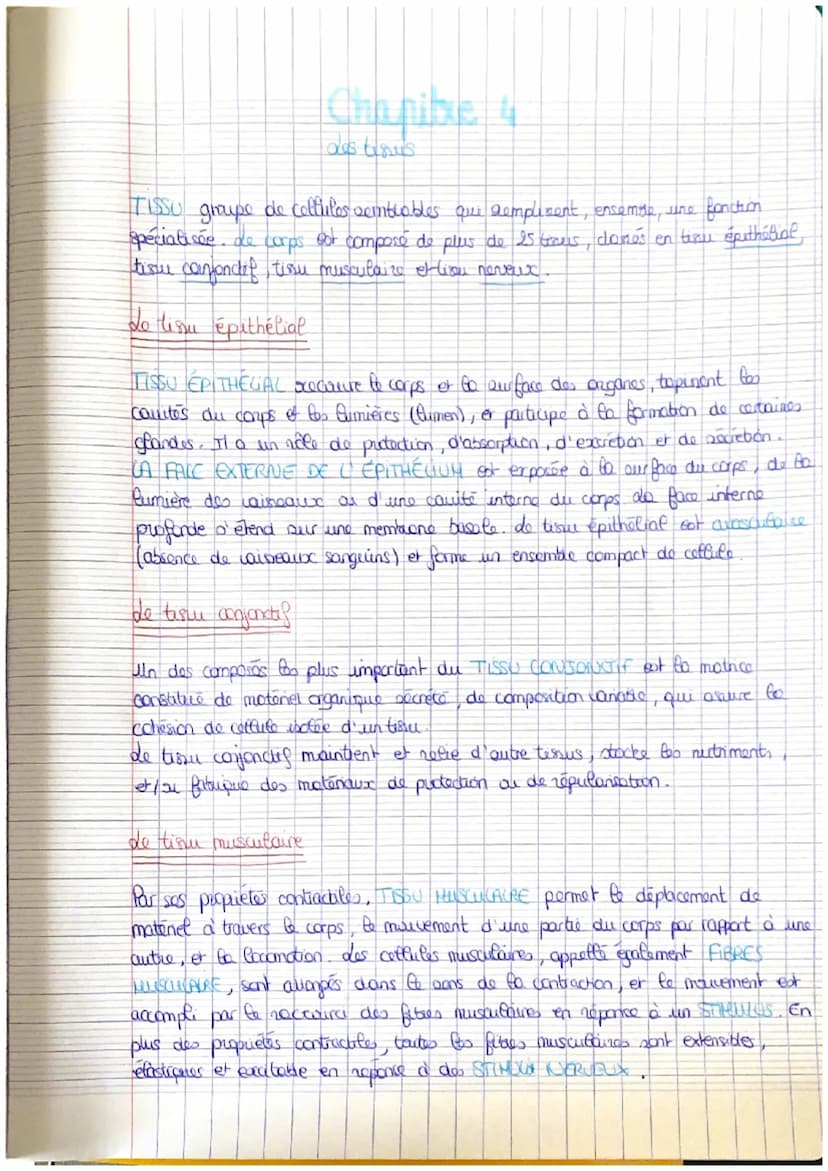 Chapitre 4
les tissus
TISSU groupe de cellules semblables qui remplissent, ensemble, une fonction
spécialisée. Le corps est composé de plus de 25 tissus, classés en tissu épithélial,
tissu conjonctif, tissu musculaire et tissu nerveux.
Le tissu épithélial
TISSU ÉPITHÉLIAL recouvre le corps et la surface des organes, tapissent les
cavités du corps et les lumières (lumen), et participe à la formation de certaines
glandes. Il a un rôle de protection, d'absorption, d'excrétion et de sécrétion.
LA FACE EXTERNE DE L'ÉPITHÉLIUM est exposée à la surface du corps, de la
lumière des vaisseaux ou d'une cavité interne du corps la face interne
profonde s'étend sur une membrane basale. Le tissu épithélial est avasculaire
(absence de vaisseaux sanguins) et forme un ensemble compact de cellule.
Le tissu conjonctif
Un des composés les plus important du TISSU CONJONCTIF est la matrice
constitué de matériel organique sécrété, de composition variable, qui assure la
cohésion de cellule isolée d'un tissu.
Le tissu conjonctif maintient et relie d'autre tissus, stocke les nutriments,
et/ou fabrique des matériaux de protection ou de régularisation.
Le tissu musculaire
Par ses propriétés contractables, TISSU MUSCULAIRE permet le déplacement de
matériel à travers le corps, le mouvement d'une partie du corps par rapport à une
autre, et la locomotion. Les cellules musculaires, appellé également FIBRES
MUSCULAIRE, sont allongés dans le sens de la contraction, et le mouvement est
accompli par le raccourci des fibres musculaires en réponse à un STIMULUS. En
plus des propriétés contractables, toutes les fibres musculaires sont extensibles,
élastiques et excitable en réponse à des STIMULI NERVEUX.